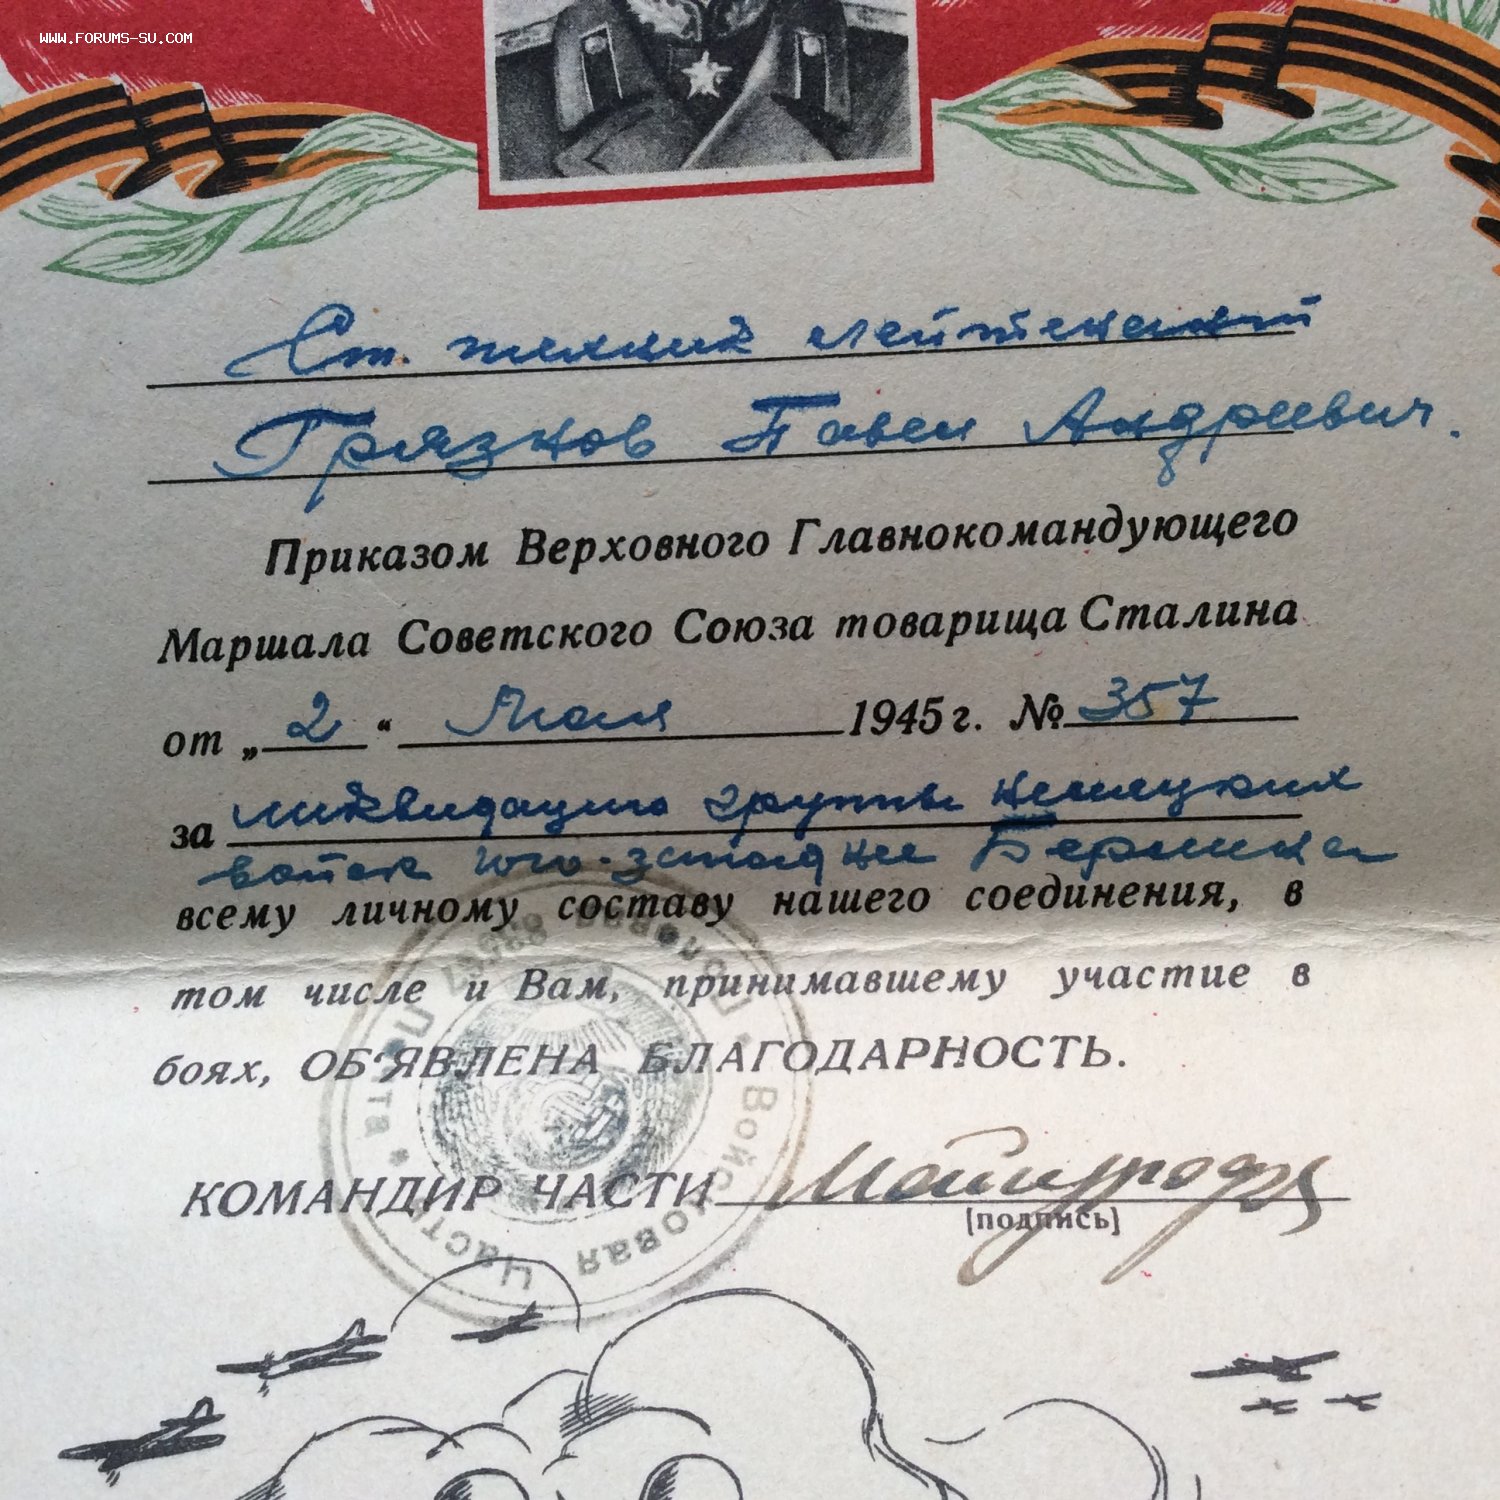 WWW.FORUMS-SU.COM
Ст. техник лейтенант
Грязнов Павел Андреевич.
Приказом Верховного Главнокомандующего
Маршала Советского Союза товарища Сталина
от „2“ Мая 1945 г. № 357
за ликвидацию группы немецких
войск юго-западнее Берлина
всему личному составу нашего соединения, в
том числе и Вам, принимавшему участие в
боях, ОБ'ЯВЛЕНА БЛАГОДАРНОСТЬ.
КОМАНДИР ЧАСТИ
[подпись]
Войсковая Часть * Полевая Почта *